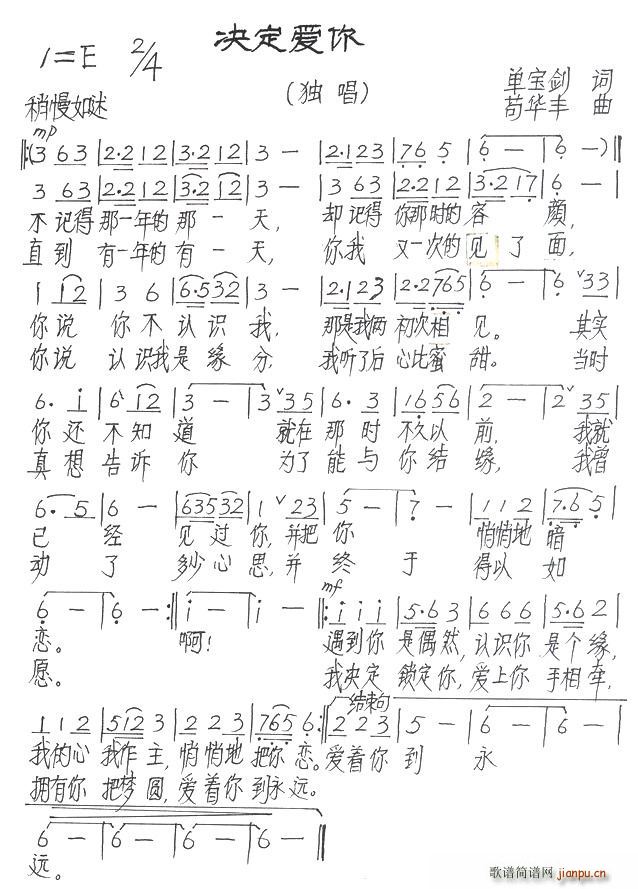 决定爱你
1=E 2/4
（独唱）
单宝剑 词
苟华丰 曲
稍慢如迷
mp
‖:(3 63 | 2·2 12 | 3·2 12 | 3 — | 2·1 23 | 76 5 | 6 — | 6 —)‖
3 63 | 2·2 12 | 3·2 12 | 3 — | 3 63 | 2·2 12 | 3·2 17 | 6 — |
不记得 那一年的 那一天， 却记得 你那时的容颜，
直到 有一年的 有一天， 你我 又一次的见了面，
1 12 | 3 6 | 6·5 32 | 3 — | 2·1 23 | 2·2 765 | 6 — | 6 ˅33 |
你说 你不认识我， 那是我俩 初次相见。 其实
你说 认识我是缘分， 我听了后 心比蜜甜。 当时
6· i | 6 12 | 3 — | 3 ˅35 | 6· 3 | 16 56 | 2 — | 2˅ 35 |
你还不知道 就在那时不久以前， 我就
真想告诉你 为了能与你结缘， 我曾
6· 5 | 6 — | 6535 32 | 1 ˅23 | 5 — | 7 — | 11 2 | 7·6 5 |
已经见过你，并把你 悄悄地暗
动了多少心思，并终于 得以如
6 — | 6 — :‖ i — | i — ‖: i i i | 5·6 3 | 66 6 | 5·6 2 |
mf
恋。 啊！ 遇到你是偶然，认识你是个缘，
愿。 我决定锁定你，爱上你手相牵，
结束句
11 2 | 512 3 | 22 3 | 765 6 :‖ 22 3 | 5 — | 6 — | 6 — |
我的心我作主，悄悄地把你恋。爱着你到永
拥有你把梦圆，爱着你到永远。
6 — | 6 — | 6 — | 6 — ‖
远。
歌谱简谱网
jianpu.cn